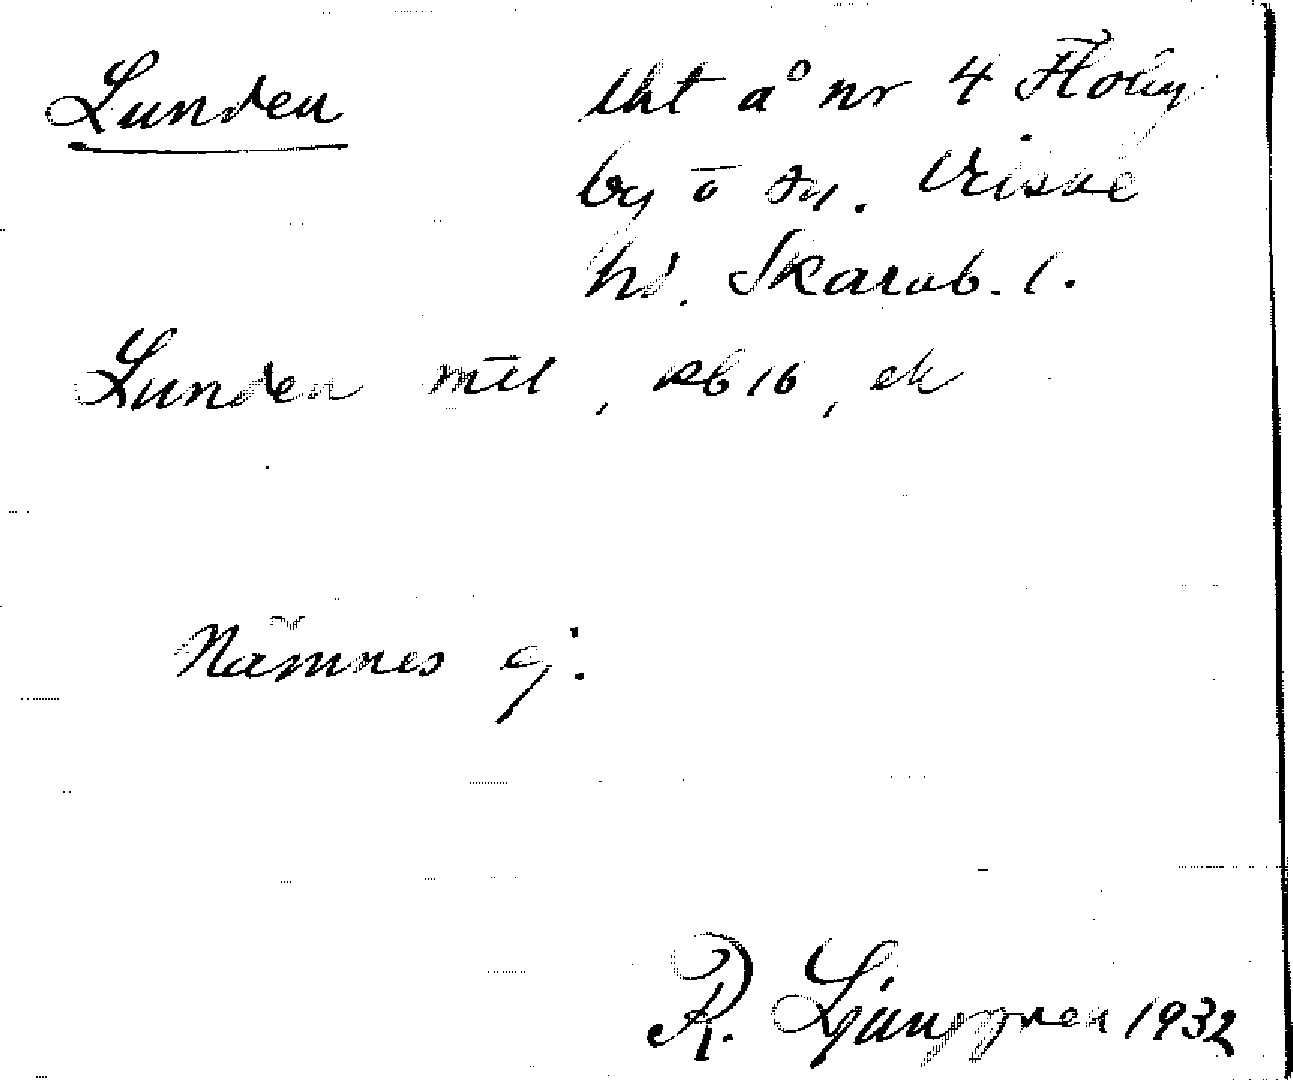 Lunden lht å nr 4 Floby
by o sn. Vilske
hd. Skarab. l.
Lunden mtl, kb 16, ek
Nämnes ej.
R. Ljunggren 1932